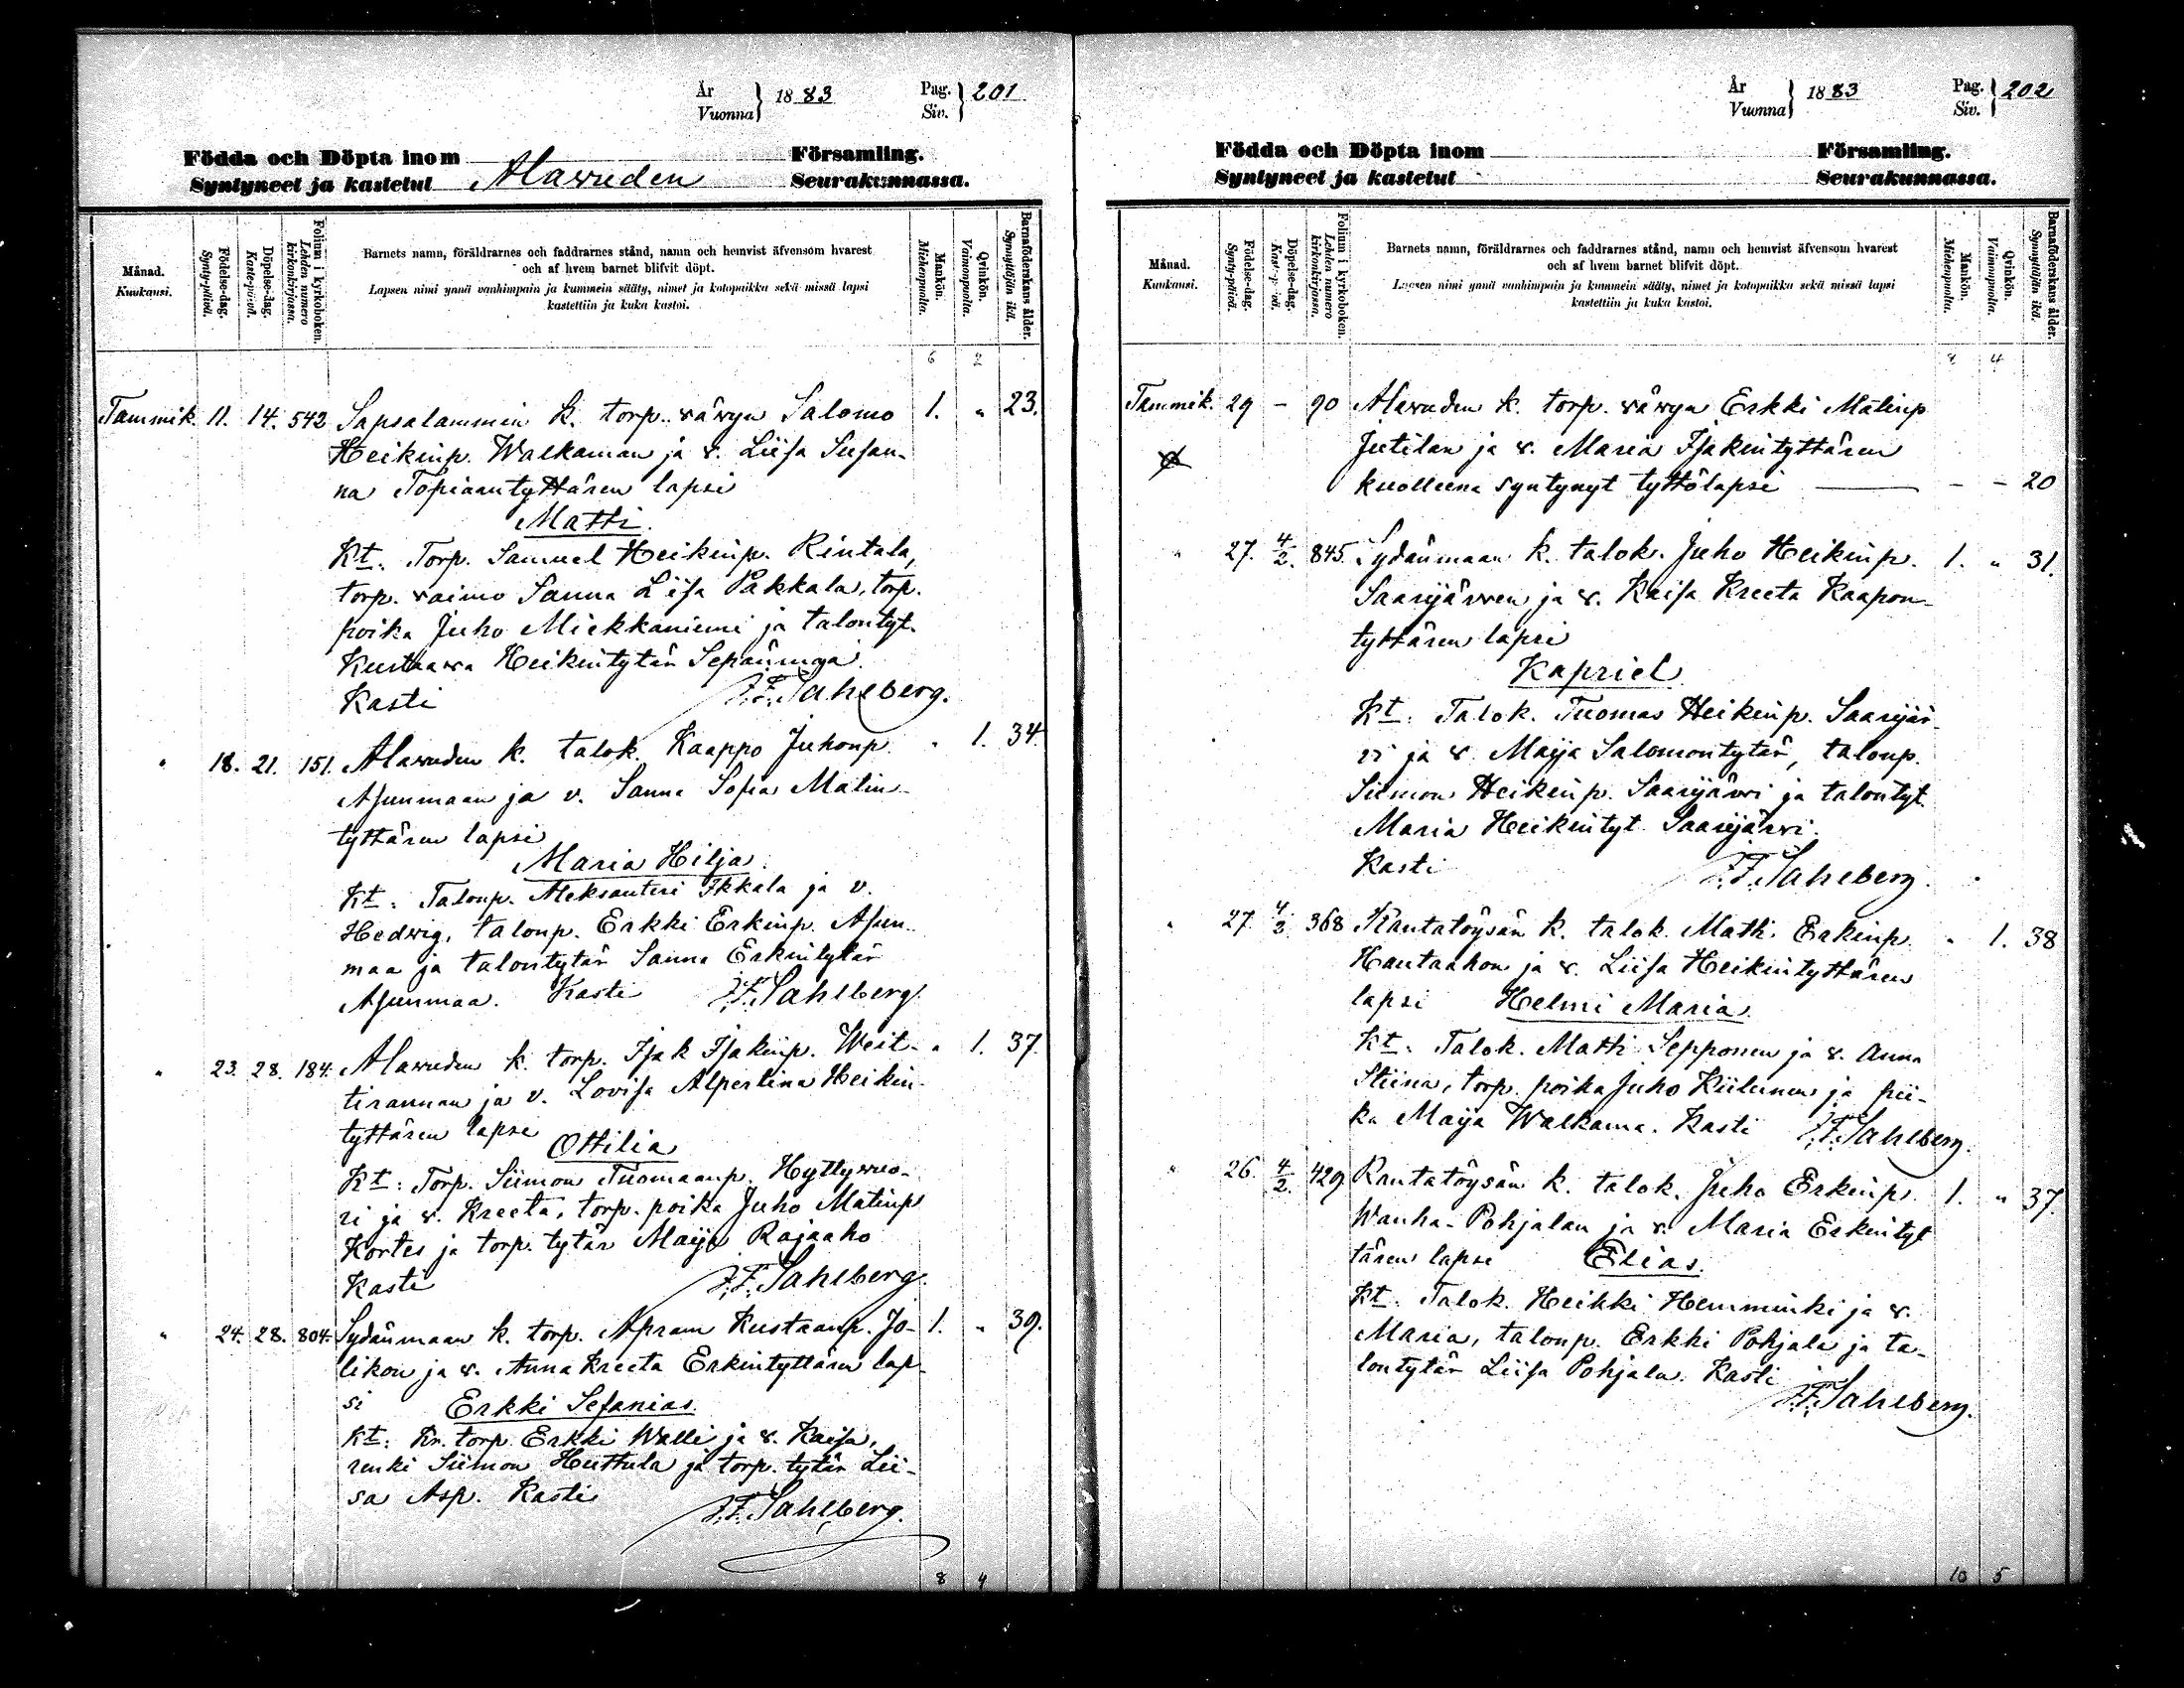 År
Vuonna } 1883 Pag.
Siv. } 201
Födda och Döpta inom Församling.
Syntyneet ja kastetut Alawuden Seurakunnassa.
Månad.
Kuukausi.
Födelse-dag.
Synty-päivä.
Döpelse-dag.
Kaste-päivä.
Folium i kyrkoboken.
Lehden numero
kirkonkirjassa.
Barnets namn, föräldrarnes och faddrarnes stånd, namn och hemvist äfvensom hvarest
och af hvem barnet blifvit döpt.
Lapsen nimi ynnä vanhimpain ja kummein sääty, nimet ja kotopaikka sekä missä lapsi
kastettiin ja kuka kastoi.
Mankön.
Miehenpuolia.
Qvinkön.
Vaimonpuolia.
Barnaföderskans ålder.
Synnyttäjän ikä.
6 2
Tammik. 11. 14. 542 Sapsalammin k. torp. väwyn Salomo 1. " 23.
Heikinp. Walkaman ja v. Liisa Susan-
na Topiaantyttären lapsi
Matti.
Kt: Torp. Samuel Heikinp. Rintala,
torp. vaimo Sanna Liisa Pakkala, torp.
poika Juho Miekkaniemi ja talontyt.
Kustaava Heikintytär
Kasti J.F. Sahlberg.
" 18. 21. 151. Alawuden k. talok. Kaappo Juhonp. " 1. 34.
Asunmaan ja v. Sanna Sofia Matin-
tyttären lapsi
Maria Hilja.
Kt: Talonp. Aleksanteri Ikkala ja v.
Hedwig, talonp. Erkki Erkinp. Asun-
maa ja talontytär Sanna Erkintytär
Asunmaa. Kasti J.F. Sahlberg.
" 23. 28. 184. Alawuden k. torp. Isak Isakinp. Weit- " 1. 37.
tirannan ja v. Lovisa Alpertina Heikin-
tyttären lapse
Ottilia
Kt: Torp. Siimon Tuomaanp. Hyttywuo-
ri ja v. Kreeta, torp. poika Juho Matinp
Kortes ja torp. tytär Maija Rajaaho
Kasti J.F. Sahlberg.
" 24. 28. 804. Sydänmaan k. torp. Apram Kustaanp. Jo- 1. " 39.
likon ja v. Anna Kreeta Erkintyttären lap-
si Erkki Sefanias.
Kt: Kr. torp. Erkki Walli ja v. Kaisa,
renki Siimon Huttula ja torp. tytär Lii-
sa Asp. Kasti
J.F. Sahlberg.
8 4
År
Vuonna } 1883 Pag.
Siv. } 202
Födda och Döpta inom Församling.
Syntyneet ja kastetut Seurakunnassa.
Månad.
Kuukausi.
Födelse-dag.
Synty-päivä.
Döpelse-dag.
Folium i kyrkoboken.
Lehden numero
kirkonkirjassa.
Barnets namn, föräldrarnes och faddrarnes stånd, namn och hemvist äfvensom hvarest
och af hvem barnet blifvit döpt.
Lapsen nimi ynnä vanhimpain ja kummein sääty, nimet ja kotopaikka sekä missä lapsi
kastettiin ja kuka kastoi.
Mankön.
Miehenpuolia.
Qvinkön.
Vaimonpuolia.
Barnaföderskans ålder.
Synnyttäjän ikä.
8 4
Tammik. 29 - 90 Alawuden k. torp. väwyn Erkki Matinp
Jutilan ja v. Maria Isakintyttären
kuolleena syntynyt tyttölapsi - - 20
" 27. 4/2. 845. Sydänmaan k. talok. Juho Heikinp. 1. " 31.
Saarijärwen ja v. Kaisa Kreeta Kaapon-
tyttären lapsi
Kapriel
Kt: Talok. Tuomas Heikinp. Saarijär-
vi ja v. Maija Salomontytär, talonp.
Siimon Heikinp. Saarijärvi ja talontyt.
Maria Heikintyt. Saarijärwi.
Kasti J.F. Sahlberg.
" 27. 4/2. 368 Rantatöysän k. talok. Matti Erkinp. " 1. 38
Hautaahon ja v. Liisa Heikintyttären
lapsi Helmi Maria.
Kt: Talok. Matti Sepponen ja v. Anna
Stiina, torp. poika Juho Kiilunen ja pii-
ka Maija Walkama. Kasti J.F. Sahlberg.
" 26. 4/2. 429 Rantatöysän k. talok. Juho Erkinp. 1. " 37.
Wanha-Pohjalan ja v. Maria Erkintyt
tären lapse Elias.
Kt: Talok. Heikki Hemminki ja v.
Maria, talonp. Erkki Pohjala ja ta-
lontytär Liisa Pohjala. Kasti
J.F. Sahlberg.
10 5